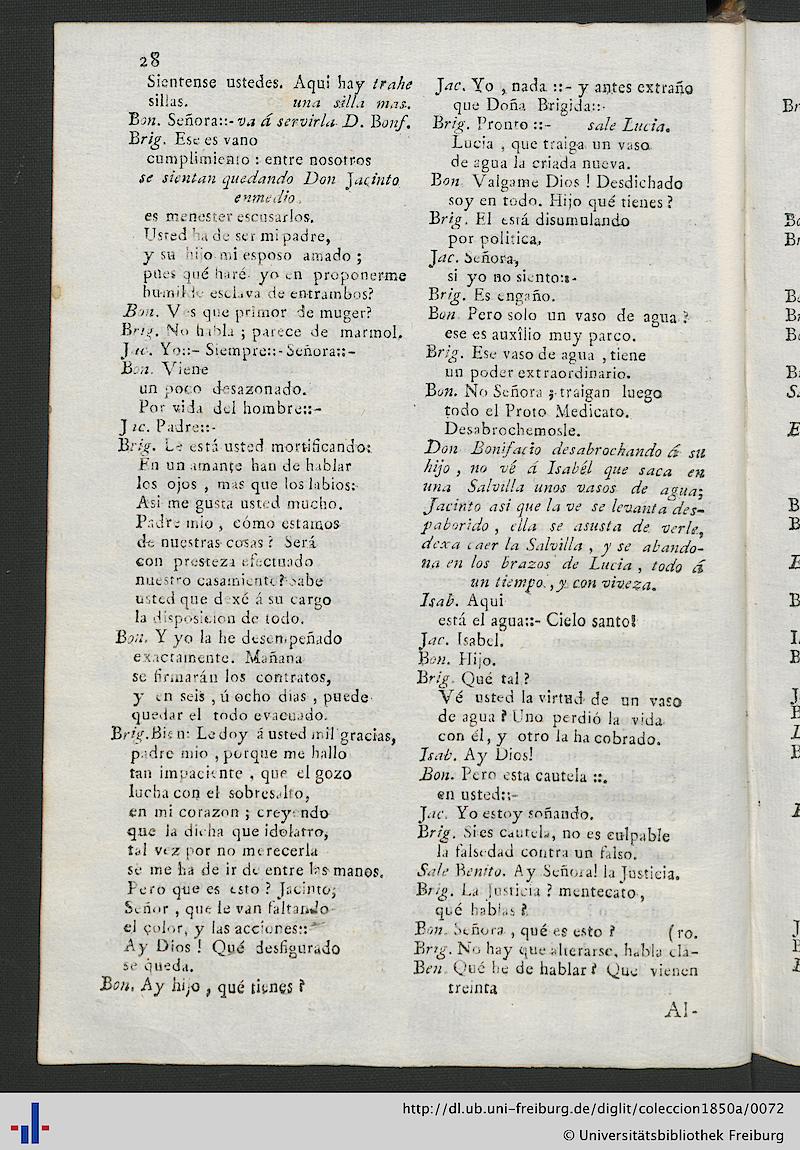 28
Sientense ustedes. Aqui hay trahe
sillas. una silla mas.
Bon. Señora::- va á servirla D. Bonf.
Brig. Ese es vano
cumplimiento : entre nosotros
se sientan quedando Don Jacinto
enmedio.
es menester escusarlos.
Usted ha de ser mi padre,
y su hijo mi esposo amado ;
pues qué haré yo en proponerme
humilde esclava de entrambos?
Bon. Ves que primor de muger?
Brig. No habla ; parece de marmol.
Jac. Yo::- Siempre::- Señora::-
Bon. Viene
un poco desazonado.
Por vida del hombre::-
Jac. Padre::-
Brig. Le está usted mortificando:
En un amante han de hablar
los ojos , mas que los labios:
Asi me gusta usted mucho.
Padre mio , cómo estamos
de nuestras cosas ? Será
con presteza efectuado
nuestro casamiento? sabe
usted que dexé á su cargo
la disposicion de todo.
Bon. Y yo la he desempeñado
exactamente. Mañana
se firmarán los contratos,
y en seis , ú ocho dias , puede
quedar el todo evacuado.
Brig. Bien: Le doy á usted mil gracias,
padre mio , porque me hallo
tan impaciente , que el gozo
lucha con el sobresalto,
en mi corazon ; creyendo
que la dicha que idolatro,
tal vez por no merecerla
se me ha de ir de entre las manos.
Pero que es esto ? Jacinto;
Señor , que le van faltando
el color, y las acciones::
Ay Dios ! Qué desfigurado
se queda.
Bon. Ay hijo , qué tienes ?
Jac. Yo , nada ::- y antes extraño
que Doña Brigida::-
Brig. Pronto ::- sale Lucia.
Lucia , que traiga un vaso
de agua la criada nueva.
Bon. Valgame Dios ! Desdichado
soy en todo. Hijo qué tienes ?
Brig. El está disumulando
por politica,
Jac. Señora,
si yo no siento::-
Brig. Es engaño.
Bon. Pero solo un vaso de agua ?
ese es auxîlio muy parco.
Brig. Ese vaso de agua , tiene
un poder extraordinario.
Bon. No Señora ; traigan luego
todo el Proto Medicato.
Desabrochemosle.
Don Bonifacio desabrochando á su
hijo , no vé á Isabél que saca en
una Salvilla unos vasos de agua;
Jacinto asi que la ve se levanta des-
paborido , ella se asusta de verle,
dexa caer la Salvilla , y se abando-
na en los brazos de Lucia , todo á
un tiempo , y con viveza.
Isab. Aqui
está el agua::- Cielo santo!
Jac. Isabel.
Bon. Hijo.
Brig. Qué tal ?
Vé usted la virtud de un vaso
de agua ? Uno perdió la vida
con él, y otro la ha cobrado.
Isab. Ay Dios!
Bon. Pero esta cautela ::.
en usted::-
Jac. Yo estoy soñando.
Brig. Si es cautela, no es culpable
la falsedad contra un falso.
Sale Benito. Ay Señora! la Justicia.
Brig. La Justicia ? mentecato ,
qué hablas ?
Bon. Señora , qué es esto ? (ro.
Brig. No hay que alterarse, habla cla-
Ben. Qué he de hablar ? Que vienen
treinta
Al-
http://dl.ub.uni-freiburg.de/diglit/coleccion1850a/0072
© Universitätsbibliothek Freiburg